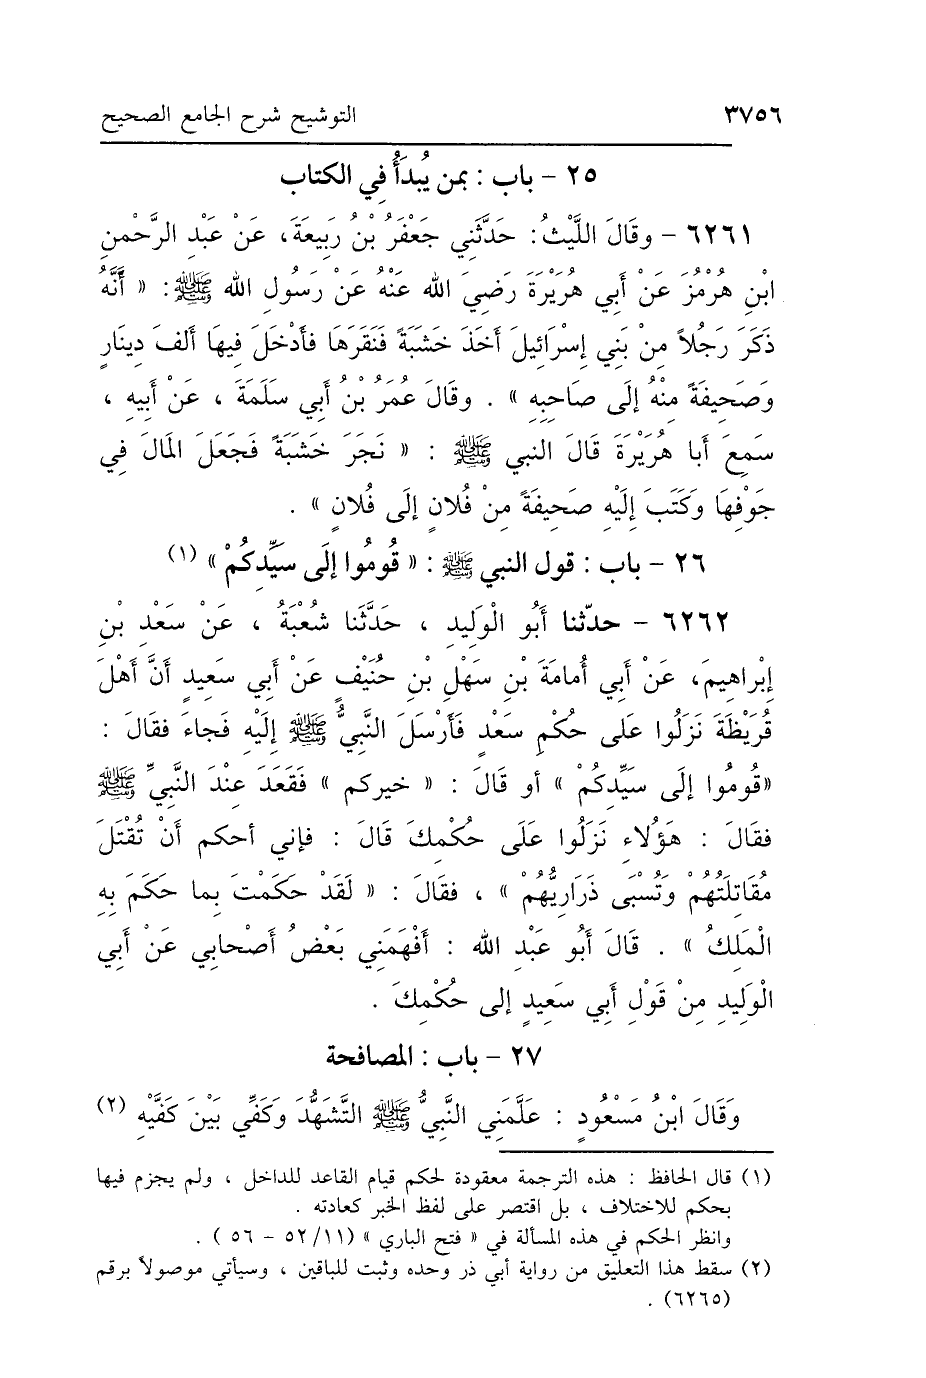 ٣٧٥٦ التوشيح شرح الجامع الصحيح
٢٥ - باب : بمن يُبدَأُ فِي الكتاب
٦٢٦١ - وقَالَ اللَّيْثُ: حَدَّثَنِي جَعْفَرُ بْنُ رَبِيعَةَ، عَنْ عَبْدِ الرَّحْمنِ
ابْنِ هُرْمُزَ عَنْ أَبِي هُرَيْرَةَ رَضِيَ الله عَنْهُ عَنْ رَسُولِ الله ﷺ: « أَنَّهُ
ذَكَرَ رَجُلاً مِنْ بَنِي إِسْرَائِيلَ أَخَذَ خَشَبَةً فَنَقَرَهَا فَأَدْخَلَ فِيهَا أَلفَ دِينَارٍ
وَصَحِيفَةً مِنْهُ إِلَى صَاحِبِهِ » . وقَالَ عُمَرُ بْنُ أَبِي سَلَمَةَ ، عَنْ أَبِيهِ ،
سَمِعَ أَبا هُرَيْرَةَ قَالَ النبي ﷺ : « نَجَرَ خَشَبَةً فَجَعَلَ المَالَ فِي
جَوْفِهَا وَكَتَبَ إِلَيْهِ صَحِيفَةً مِنْ فُلانٍ إِلَى فُلانٍ » .
٢٦ - باب : قول النبي ﷺ : « قُومُوا إِلَى سَيِّدِكُمْ » (١)
٦٢٦٢ - حدّثنا أَبُو الْوَلِيدِ ، حَدَّثَنا شُعْبَةُ ، عَنْ سَعْدِ بْنِ
إِبْراهِيمَ، عَنْ أَبِي أُمامَةَ بْنِ سَهْلِ بْنِ حُنَيْفٍ عَنْ أَبِي سَعِيدٍ أَنَّ أَهْلَ
قُرَيْظَةَ نَزَلُوا عَلى حُكْمِ سَعْدٍ فَأَرْسَلَ النَّبِيُّ ﷺ إِلَيْهِ فَجاءَ فقَالَ :
«قُومُوا إِلَى سَيِّدِكُمْ » أو قَالَ : « خيركم » فَقَعَدَ عِنْدَ النَّبِيِّ ﷺ
فقَالَ : هَؤُلاءِ نَزَلُوا عَلَى حُكْمِكَ قَالَ : فإني أحكم أَنْ تُقْتَلَ
مُقَاتِلَتُهُمْ وَتُسْبَى ذَرَارِيُّهُمْ » ، فقَالَ : « لَقَدْ حَكَمْتَ بِما حَكَمَ بِهِ
الْمَلِكُ » . قَالَ أَبُو عَبْدِ الله : أَفْهَمَنِي بَعْضُ أَصْحابِي عَنْ أَبِي
الْوَلِيدِ مِنْ قَوْلِ أَبِي سَعِيدٍ إلى حُكْمِكَ .
٢٧ - باب : المصافحة
وَقَالَ ابْنُ مَسْعُودٍ : عَلَّمَنِي النَّبِيُّ ﷺ التَّشَهُّدَ وَكَفِّي بَيْنَ كَفَّيْهِ (٢)
(١) قال الحافظ : هذه الترجمة معقودة لحكم قيام القاعد للداخل ، ولم يجزم فيها
بحكم للاختلاف ، بل اقتصر على لفظ الخبر كعادته .
وانظر الحكم في هذه المسألة في « فتح الباري » (٥٢/١١ - ٥٦ ) .
(٢) سقط هذا التعليق من رواية أبي ذر وحده وثبت للباقين ، وسيأتي موصولاً برقم
(٦٢٦٥) .